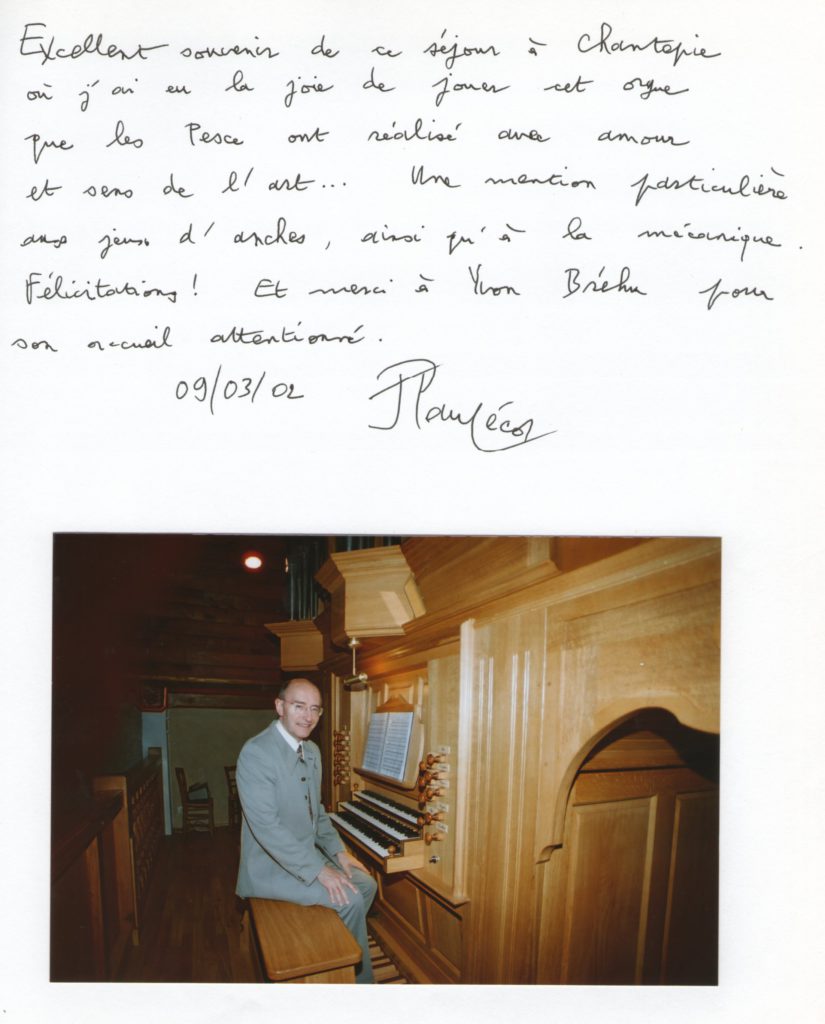 Excellent souvenir de ce séjour à Chantepie
où j'ai eu la joie de jouer cet orgue
que les Pesce ont réalisé avec amour
et sens de l'art... Une mention particulière
aux jeux d'anches, ainsi qu'à la mécanique.
Félicitations! Et merci à Yvon Bréhu pour
son accueil attentionné.
09/03/02